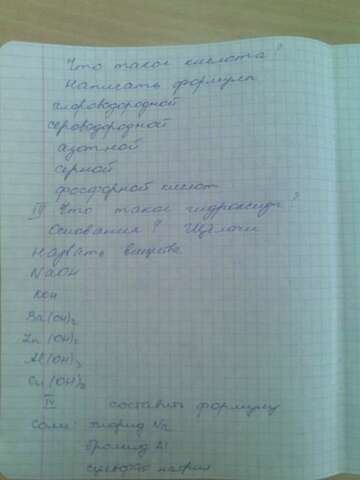 Что такое кислота?
Написать формулы
хлороводородной
сероводородной
азотной
серной
фосфорной кислот
III Что такое гидроксиды?
Основания? Щёлочи
Назвать вещества
NaOH
KOH
Ba(OH)2
Zn(OH)2
Al(OH)3
Cu(OH)2
IV составить формулу
Соли: хлорид Na
бромид Al
сульфат натрия